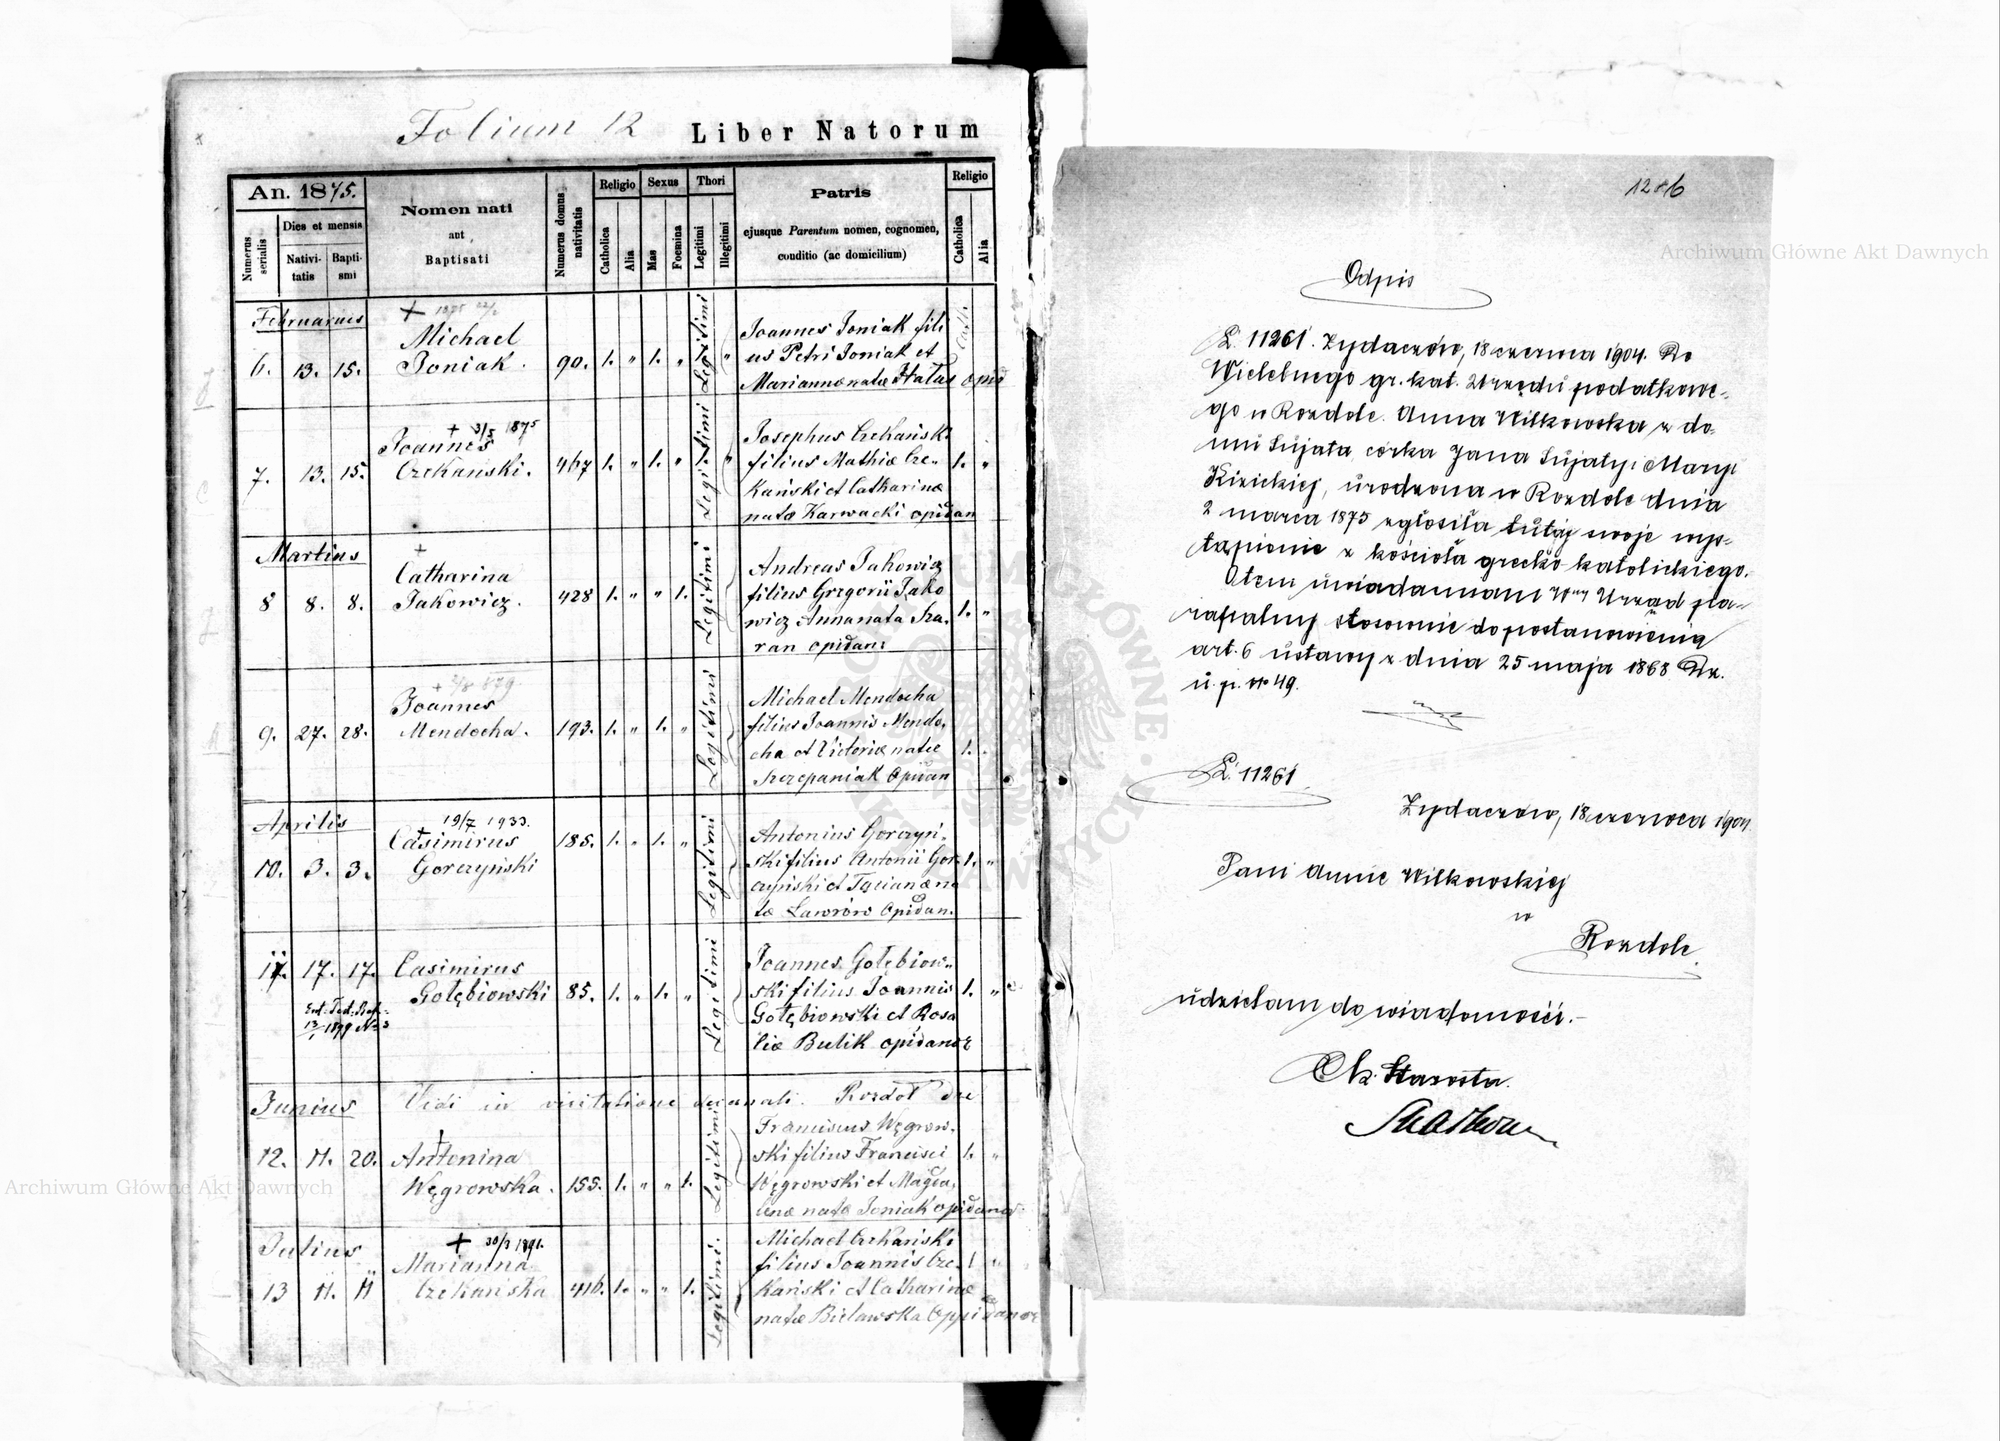 Folium 12 Liber Natorum
An. 1875.
Numerus serialis
Dies et mensis
Nativitatis
Baptismi
Nomen nati
aut
Baptisati
Numerus domus nativitatis
Religio
Catholica
Alia
Sexus
Mas
Foemina
Thori
Legitimi
Illegitimi
Patris
ejusque Parentum nomen, cognomen,
conditio (ac domicilium)
Religio
Catholica
Alia
Februarius
+ 1875
6. 13. 15. Michael
Joniak. 90. 1. " 1. " Legitimi 1. "
Joannes Joniak fili
us Petri Joniak et
Mariannae natae Hałas opid
Cath
+ 3/5 1875
7. 13. 15. Joannes
Czekański. 467 1. " 1. " Legitimi 1. "
Josephus Czekański
filius Mathiæ Cze-
kański et Catharinæ
natæ Karwacki opidan
1. "
Martius
+
8 8. 8. Catharina
Jakowicz. 428 1. " " 1. Legitimi
Andreas Jakowicz
filius Gregorii Jako
wicz Anna nata
ran opidan:
1. "
+ 879.
9. 27. 28. Joannes
Mendocha. 193. 1. " 1. " Legitimi
Michael Mendocha
filius Joannis Mendo-
cha et Victoriæ natæ
Szczepaniak Opidan
1. "
Aprilis
+ 19/7 1933.
10. 3. 3. Casimirus
Gorczyński 185. 1. " 1. " Legitimi
Antonius Gorczyń-
ski filius Antonii Gor-
czyński et Tacianæ na
tæ Ławrów Opidan.
1. "
11. 17. 17. Casimirus
Gołębiowski 85. 1. " 1. " Legitimi
1899 No 3
Joannes Gołębiow-
ski filius Joannis
Gołębiowski et Rosa
liæ Bulik opidanor
1. "
Junius
Vidi in visitatione decanali. Rozdoł die
+
12. 11. 20. Antonina
Węgrowska. 155. 1. " " 1. Legitimi
Franciscus Węgrow-
ski filius Francisci
Węgrowski et Magda-
lenæ natæ Joniak opidanor
1. "
Julius
+ 30/3 1891.
13 11. 11 Marianna
Czekańska 416. 1. " " 1. Legitimi.
Michael Czekański
filius Joannis Cze-
kański et Catharinæ
natæ Bielawska Oppidanor
1 "
1286
Odpis
L. 11261. Żydaczów, 18 czerwca 1904. Do
Wielebnego gr. kat. Urzędu podatkowe-
go w Rozdole. Anna Wilkowska z do-
mu Sujata, córka Jana Sujaty i Maryi
Kizickiej, urodzona w Rozdole dnia
2 marca 1875 zgłosiła tutaj swoje wys-
tąpienie z kościoła grecko katolickiego.
O tem uwiadamiam Wny Urząd pa-
rafialny stosownie do postanowienia
art. 6 ustawy z dnia 25 maja 1868 Dz.
u. p. No 49.
L. 11261
Żydaczów, 18 czerwca 1904.
Pani Annie Wilkowskiej
w
Rozdole.
udzielam do wiadomości.-
Ck. Starosta.
Archiwum Główne Akt Dawnych
Archiwum Główne Akt Dawnych
ARCHIWUM GŁÓWNE AKT DAWNYCH